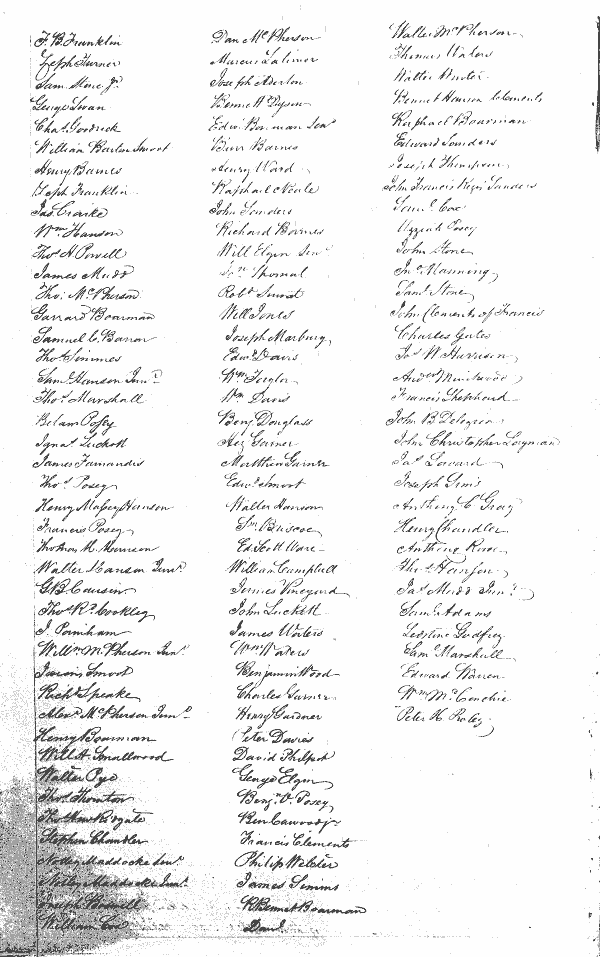 F. B. Franklin
Zeph Turner
Sam. More Jr.
George Swan
Chas. Goodrick
William Barton Smoot
Henry Barnes
Zeph Franklin
Jas. Craike
Wm. Hanson
Thos. A. Powell
James Mudd
Thos. McPherson
Garrard Boarman
Samuel C. Barron
Thos. Simmes
Saml. Hanson Junr.
Thos. Marshall
Belain Posey
Ignas. Luckett
James Farnandis
Thos. Posey
Henry Massey Hanson
Francis Posey
Thomas M. Morrison
Walter Hanson Junr.
G B Causin
Thos. R. Cookley
J. Parnham
Willm. McPherson Junr.
Smoot
Richd. Speake
Alexr. McPherson Junr.
Henry Boarman
Will A. Smallwood
Walter Pye
Thos. Thornton
Thos. How Ridgate
Stephen Chandler
Notley Maddocke Senr.
Notley Maddocke Junr.
Joseph Boswell
William Cox
Dan McPherson
Marcus Latimer
Joseph Aderton
Bennett Dyson
Edwd. Boarman Senr.
Burr Barnes
Henry Ward
Raphael Neale
John Sanders
Richard Barnes
Will Elgin Senr.
Thomas
Robt. Smoot
Will Jones
Joseph Marbury
Edwd. Davis
Wm. Taylor
Wm. Davis
Benj. Douglass
Hez Garner
Matthew Garner
Edwd. Smoot
Walter Hanson
Sm. Briscoe
Ed. Scott Ware
William Campbell
James Vineyard
John Luckett
James Waters
Wm. Waters
Benjamin Wood
Charles Garner
Henry Gardner
Peter Davis
David Philpot
George Elgin
Benj. V. Posey
Ben Cawood Jr
Francis Clements
Philip Webster
James Simms
R Bennet Boarman
Danl.
Walter McPherson
Thomas Waters
Walter Hunter
Bennet Hanson Clements
Raphael Boarman
Edward Sanders
Joseph Thompson
John Francis Regis Sanders
Saml. Cox
Uzziah Posey
John Stone
Jno. Manning
Saml. Stone
John Clements of Francis
Charles Gates
Jos. W. Harrison
Andw. Muirwood
Francis Shepherd
John B Delozier
John Christopher Loryman
Jas. Lovard
Joseph Sims
Anthony C. Gray
Henry Chandler
Anthony Rowe
Thos. Hanson
Jas. Mudd Junr.
Saml. Adams
Godfrey
Saml. Marshall
Edward Warren
Wm. McConchie
Peter H. Roley